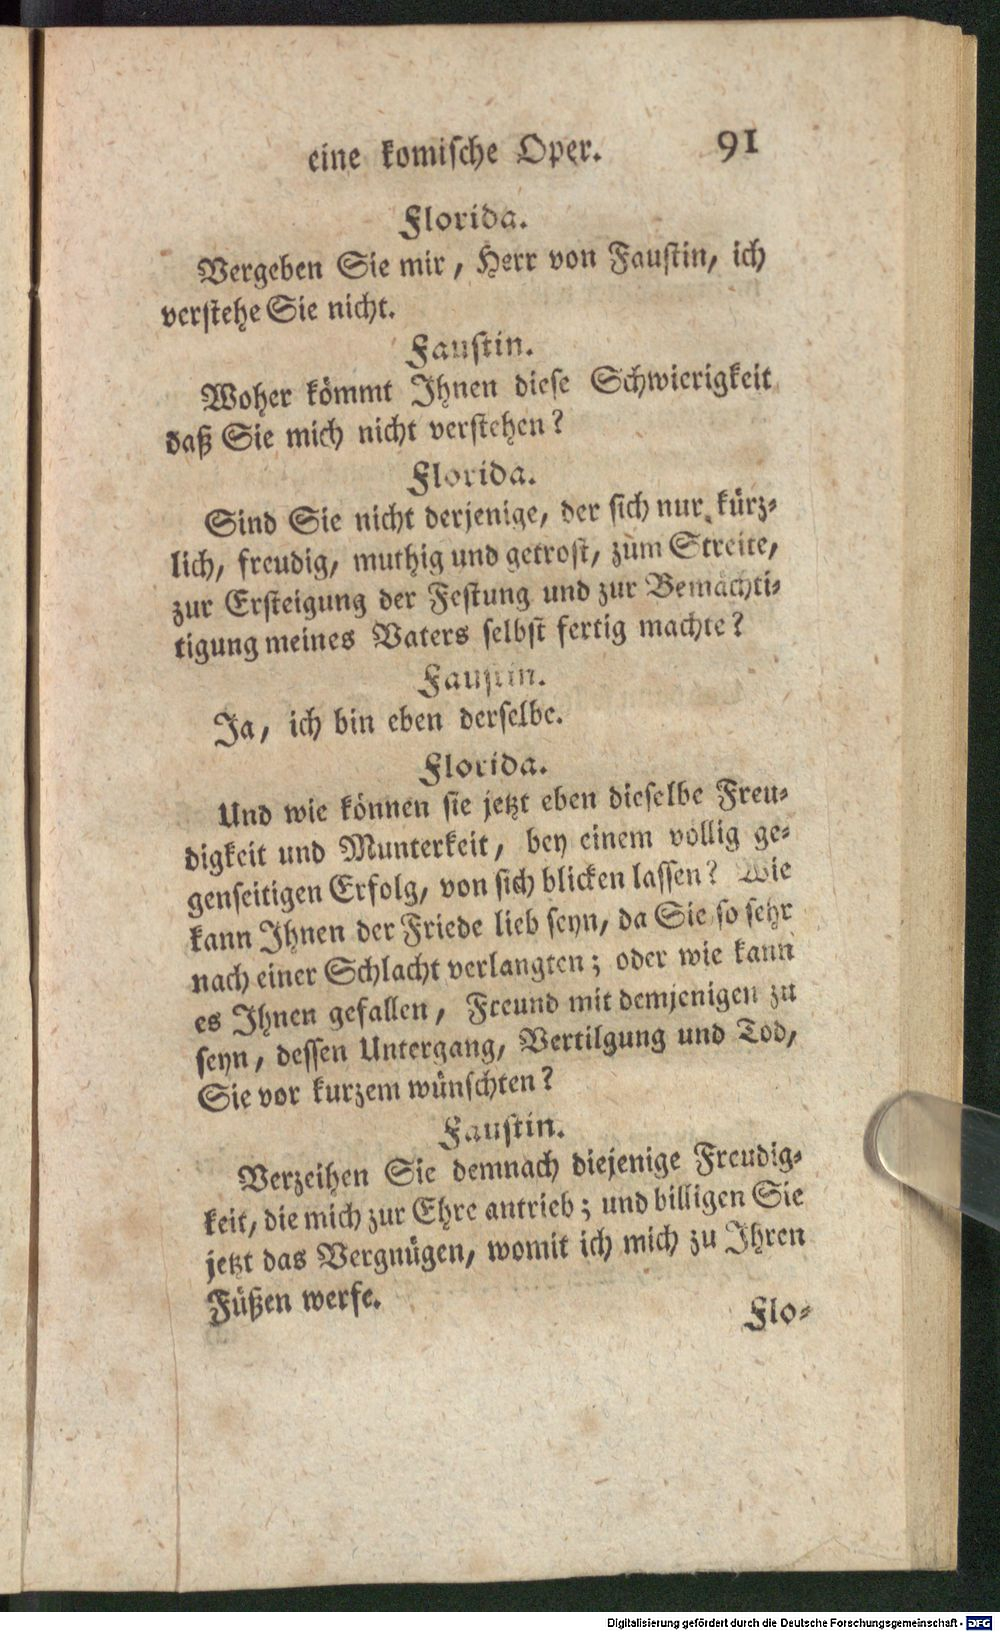 eine komische Oper. 91
Florida.
Vergeben Sie mir, Herr von Faustin, ich
verstehe Sie nicht.
Faustin.
Woher kömmt Ihnen diese Schwierigkeit
daß Sie mich nicht verstehen?
Florida.
Sind Sie nicht derjenige, der sich nur kürz-
lich, freudig, muthig und getrost, zum Streite,
zur Ersteigung der Festung und zur Bemächti-
tigung meines Vaters selbst fertig machte?
Faustin.
Ja, ich bin eben derselbe.
Florida.
Und wie können sie jetzt eben dieselbe Freu-
digkeit und Munterkeit, bey einem vollig ge-
genseitigen Erfolg, von sich blicken lassen? Wie
kann Ihnen der Friede lieb seyn, da Sie so sehr
nach einer Schlacht verlangten; oder wie kann
es Ihnen gefallen, Freund mit demjenigen zu
seyn, dessen Untergang, Vertilgung und Tod,
Sie vor kurzem wünschten?
Faustin.
Verzeihen Sie demnach diejenige Freudig-
keit, die mich zur Ehre antrieb; und billigen Sie
jetzt das Vergnügen, womit ich mich zu Ihren
Füßen werfe.
Flo-
Digitalisierung gefördert durch die Deutsche Forschungsgemeinschaft - DFG